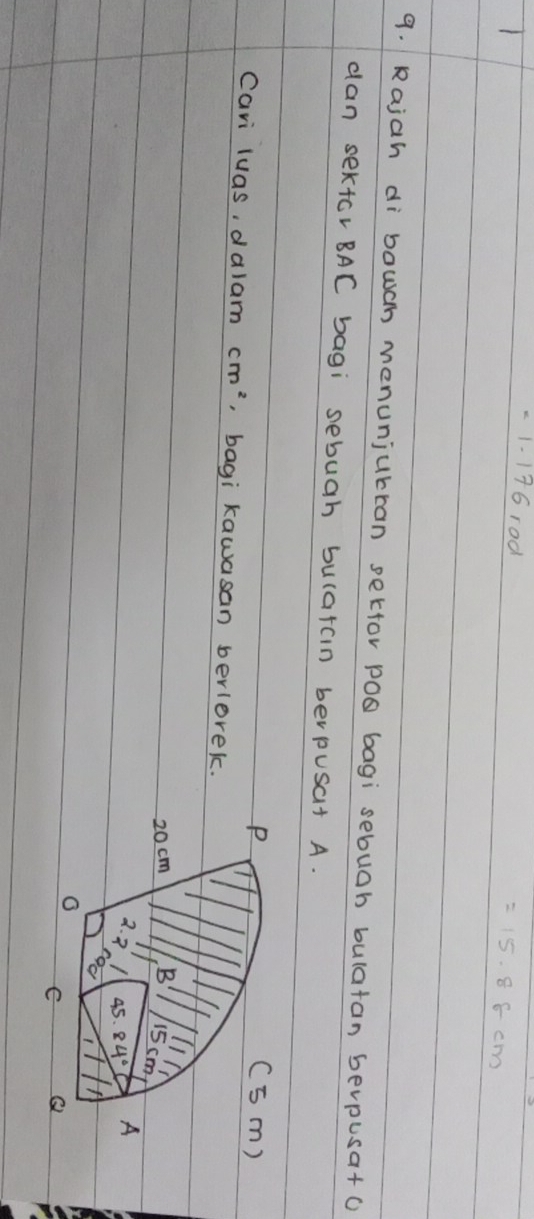 1
= 1.176 rad
= 15.88 cm
9. Rajah di bawah menunjukkan sektor POQ bagi sebuah bulatan berpusat O
dan sektor BAC bagi sebuah bulatan berpusat A.
Cari luas, dalam cm², bagi kawasan berlorek.
(5 m)
P
20 cm
B
15 cm
2.2 rad
45.84°
A
O
C
Q